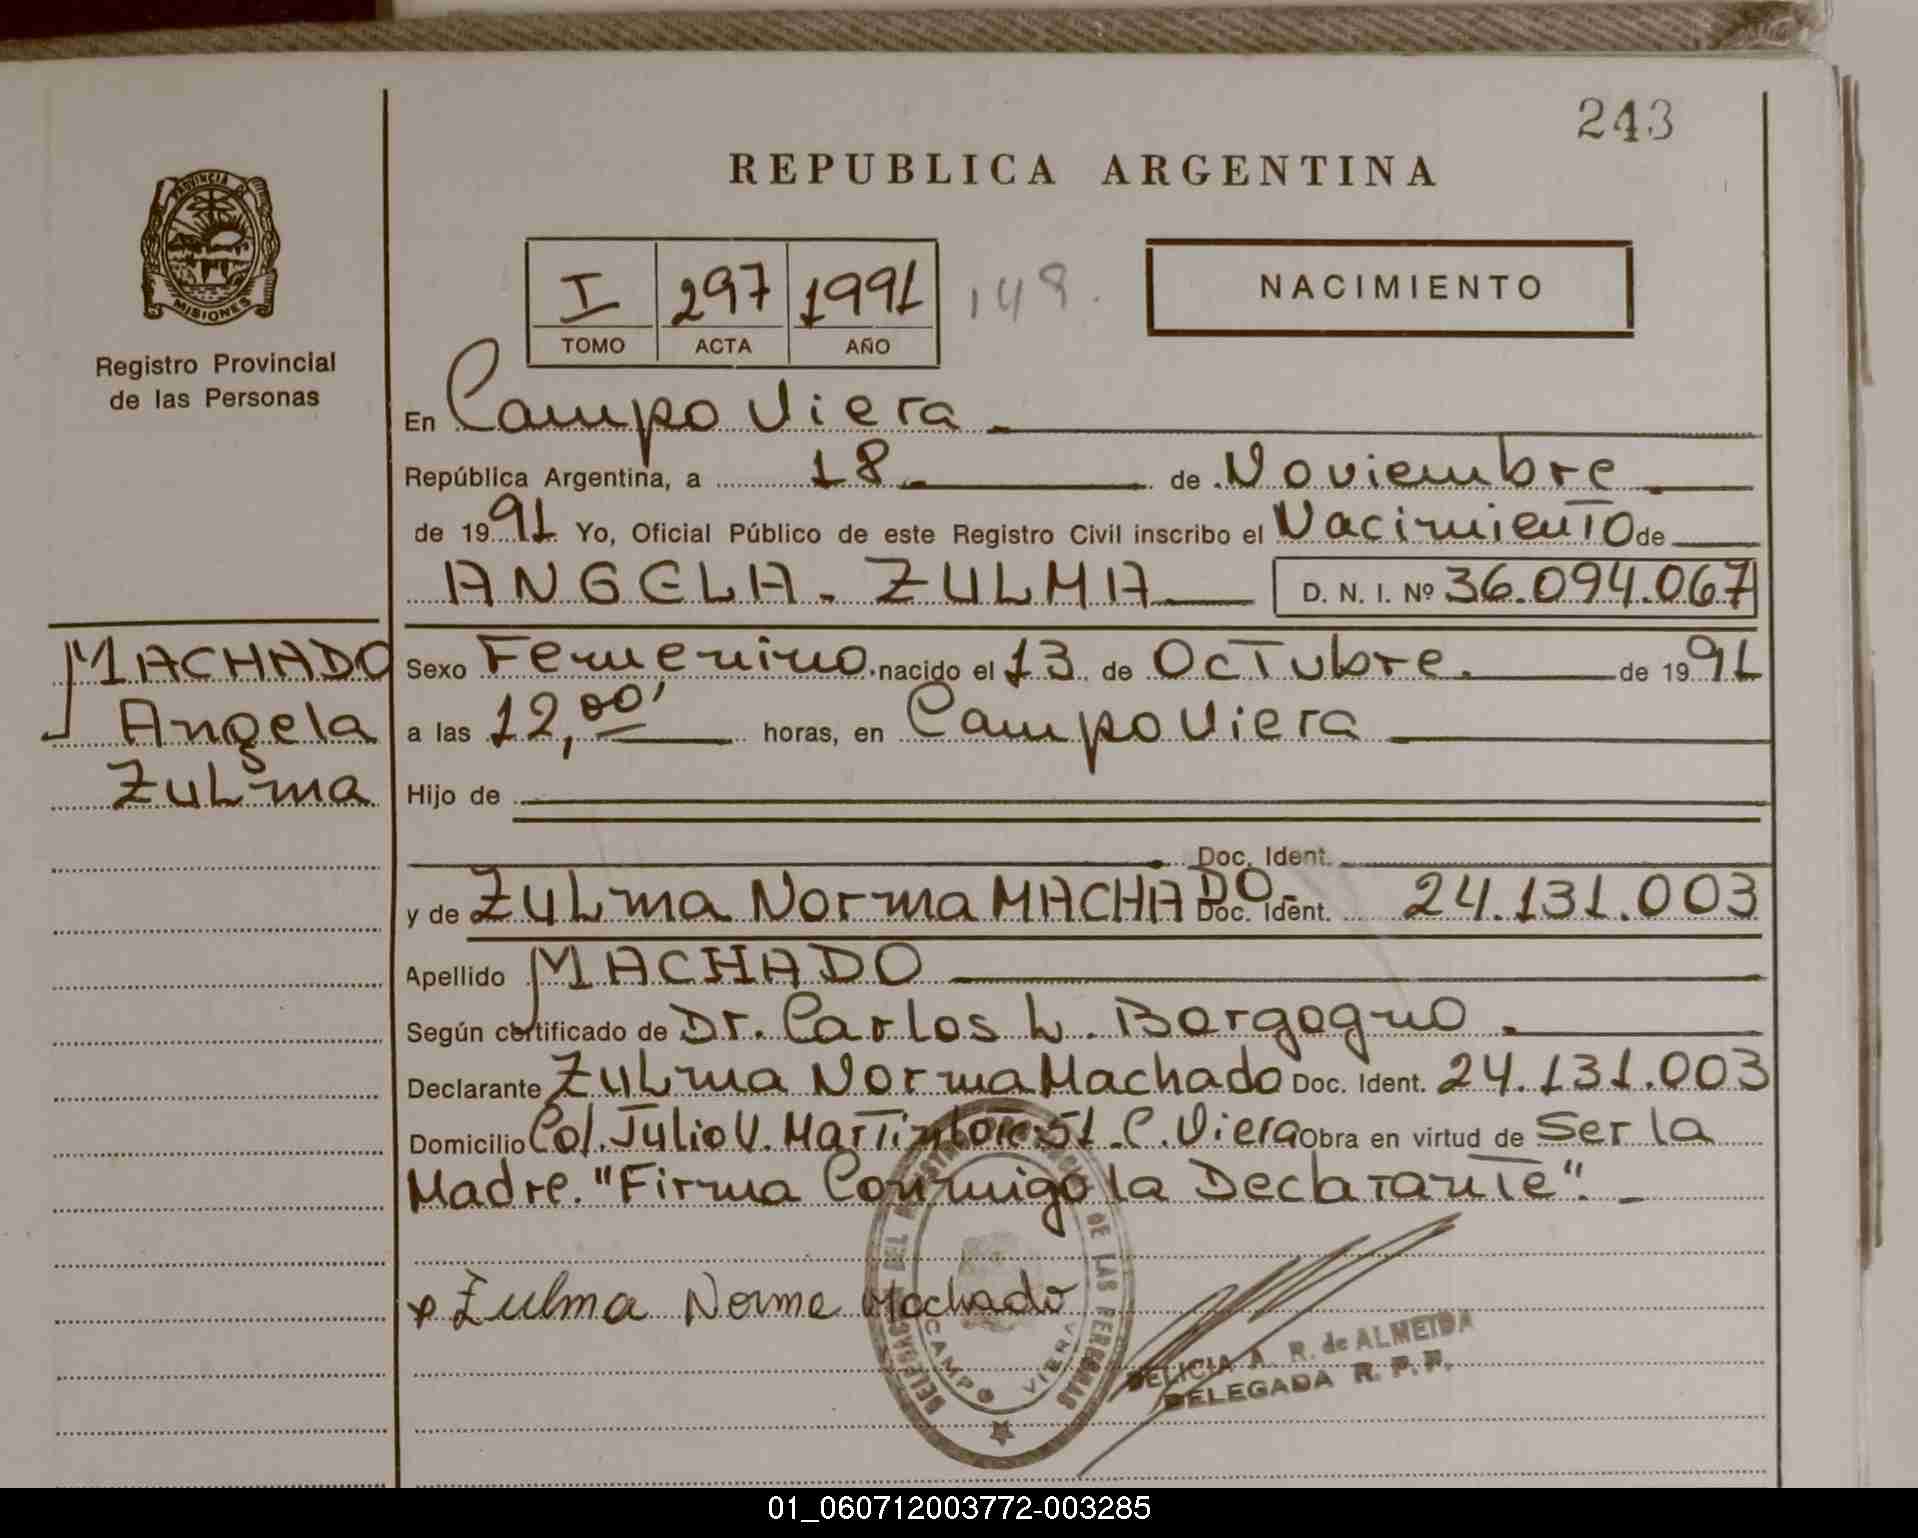 243
REPUBLICA ARGENTINA
PROVINCIA DE
MISIONES
Registro Provincial
de las Personas
I 297 1991 148.
TOMO ACTA AÑO
NACIMIENTO
En Campo Viera
República Argentina, a 18 de Noviembre
de 1991 Yo, Oficial Público de este Registro Civil inscribo el Nacimiento de
ANGELA - ZULMA D. N. I. Nº 36.094.067
MACHADO
Angela
Zulma
Sexo Femenino nacido el 13 de Octubre de 1991
a las 12,00' horas, en Campo Viera
Hijo de
Doc. Ident.
y de Zulma Norma MACHADO- Doc. Ident. 24.131.003
Apellido MACHADO
Según certificado de Dr. Carlos L. Borgogno
Declarante Zulma Norma Machado Doc. Ident. 24.131.003
Domicilio Col. Julio U. Martin 51 C. Viera Obra en virtud de Ser la
Madre. "Firma Conmigo la Declarante". -
Zulma Norma Machado
DE LAS PERSONAS
CAMPO VIERA
DELICIA A. R. de ALMEIDA
DELEGADA R. P. P.
01_060712003772-003285